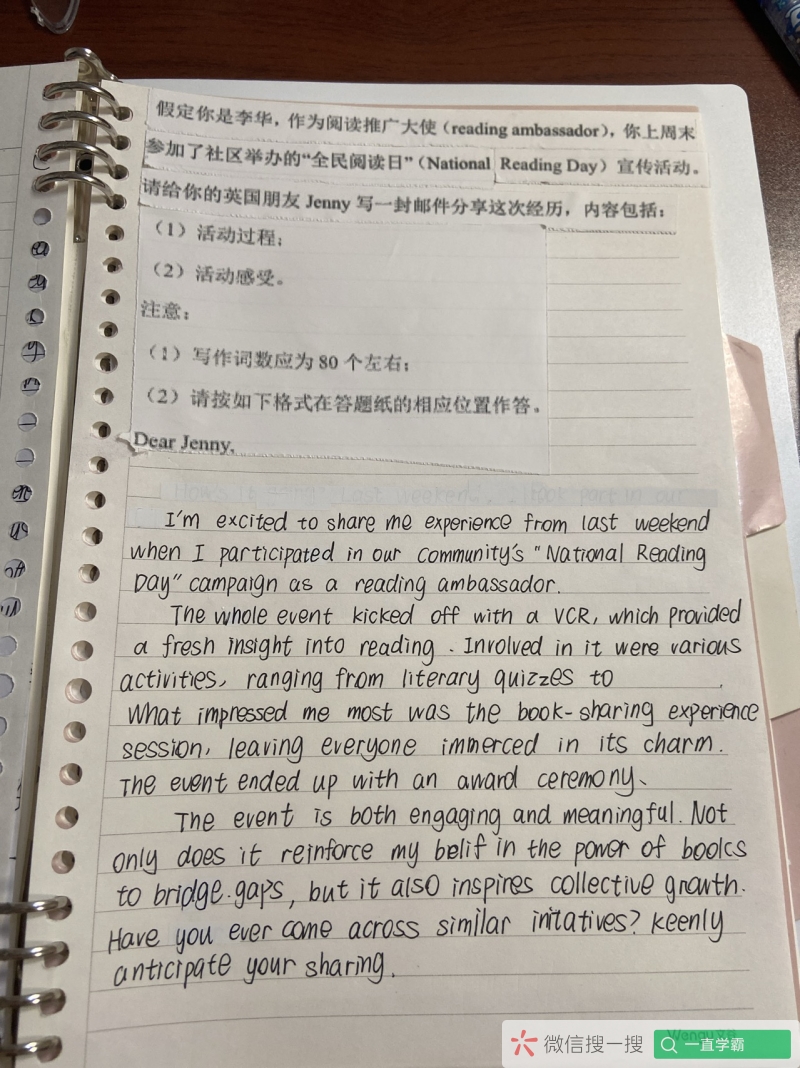 假定你是李华，作为阅读推广大使（reading ambassador），你上周末
参加了社区举办的“全民阅读日”（National Reading Day）宣传活动。
请给你的英国朋友 Jenny 写一封邮件分享这次经历，内容包括：
（1）活动过程；
（2）活动感受。
注意：
（1）写作词数应为 80 个左右；
（2）请按如下格式在答题纸的相应位置作答。
Dear Jenny,
I'm excited to share me experience from last weekend
when I participated in our community's "National Reading
Day" campaign as a reading ambassador.
The whole event kicked off with a VCR, which provided
a fresh insight into reading. Involved in it were various
activities, ranging from literary quizzes to .
What impressed me most was the book-sharing experience
session, leaving everyone immerced in its charm.
The event ended up with an award ceremony、
The event is both engaging and meaningful. Not
only does it reinforce my belif in the power of books
to bridge gaps, but it also inspires collective growth.
Have you ever come across similar initatives? keenly
anticipate your sharing.
微信搜一搜
一直学霸